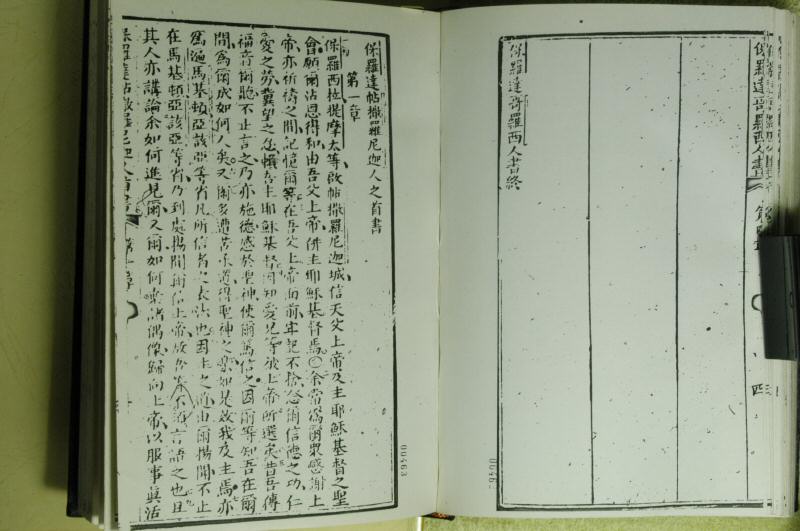 保羅達哥羅西人書
四
保羅達哥羅西人書終
0046
保羅達帖撒羅尼迦人之首書
第一章
保羅西拉提摩太等啟帖撒羅尼迦城信天父上帝及主耶穌基督之聖
會願爾沾恩得和由吾父上帝併主耶穌基督焉〇余常為爾眾感謝上
帝亦祈禱之間記憶爾等在吾父上帝面前牢記不捨念爾信德之功仁
愛之勞冀望之忍賴吾主耶穌基督因知愛兄等被上帝所選矣昔吾傳
福音爾聽不止言之乃亦施德感於聖神使爾篤信之因爾等知吾在爾
間為爾成如何人矣又爾多遭苦承道得聖神之樂如是效我及主焉亦
為遍馬基頓亞該亞等省凡所信者之表法也因主之道由爾揚聞不止
在馬基頓亞該亞等省乃到處揚聞爾信上帝故余等不須言語之也且
其人亦講論余如何進見爾又爾如何棄諸偶像歸向上帝以服事真活
保羅達帖撒羅尼迦人首書 第一章
00463